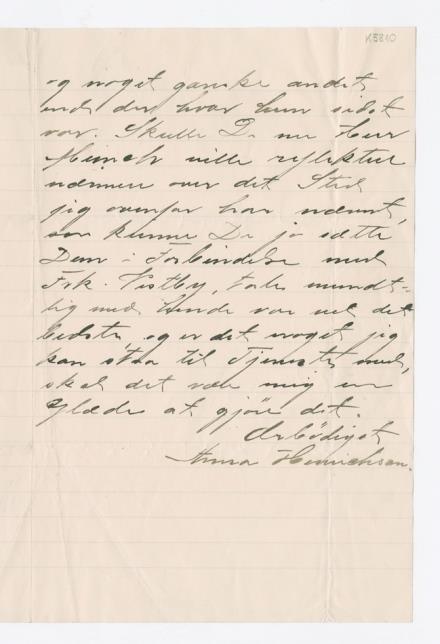 K5810
og noget ganske andet
end der hvor hun sidst
var. Skulle De nu Herr
Heinch ville reflektere
nærmere over det Sted
jeg ovenfor har nævnt,
saa kunne De jo sætte
Dem i Forbindelse med
Frk. Vestby, tale mundt-
lig med hende var vel det
bedste, og er det noget jeg
kan staa til Tjeneste med,
skal det være mig en
Glæde at gjøre det.
Ærbødigst
Anna Hinrichsen.